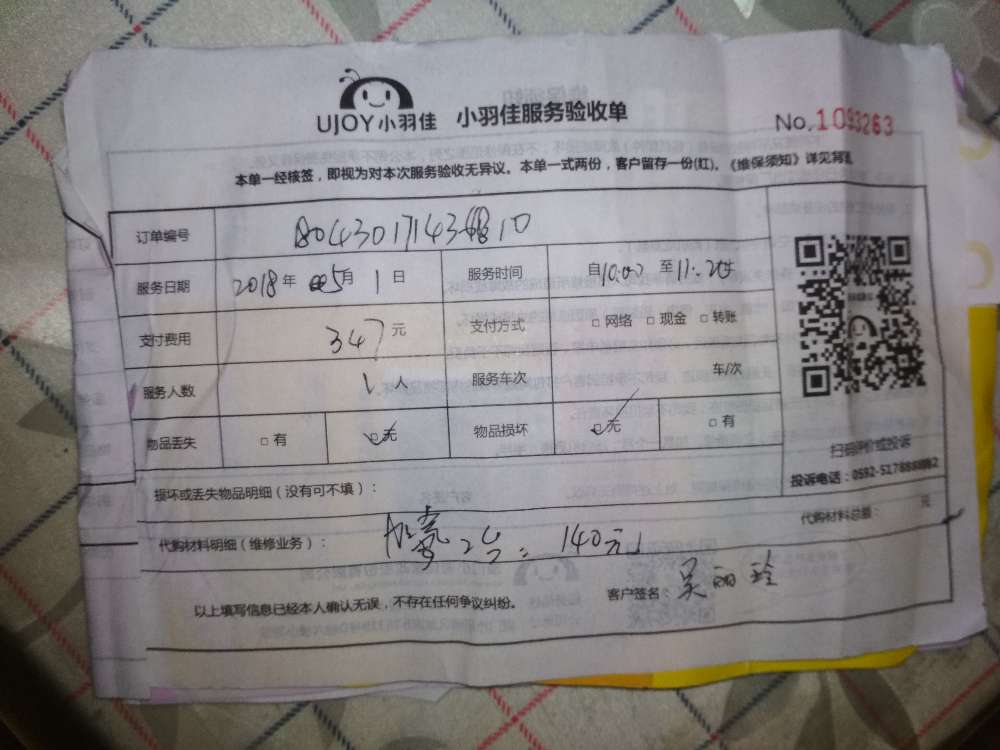 UJOY小羽佳 小羽佳服务验收单
No.1093263
本单一经核签，即视为对本次服务验收无异议。本单一式两份，客户留存一份(红)。《维保须知》详见背
订单编号
服务日期 2018年 5月 1日 服务时间 自10:00 至11:20
支付费用 347元 支付方式 □网络 □现金 □转账
服务人数 1人 服务车次 车/次
物品丢失 □有 □无 物品损坏 □无 □有
扫码评价或投诉
投诉电话：0592-5178888
损坏或丢失物品明细（没有可不填）：
代购材料总额： 元
代购材料明细（维修业务）： 2台：140元
以上填写信息已经本人确认无误，不存在任何争议纠纷。 客户签名：吴丽玲